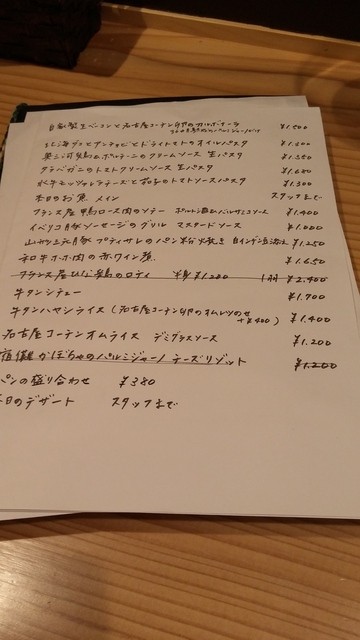 自家製生ベーコンと名古屋コーチン卵のカルボナーラ ¥1,500
北海ダコとアンチョビとドライトマトのオイルパスタ ¥1,300
奥三河鶏とポルチーニのクリームソース 生パスタ ¥1,350
ワタリガニのトマトクリームソース 生パスタ ¥1,680
水牛モッツァレラチーズと茄子のトマトソースパスタ ¥1,300
本日のお魚 メイン スタッフまで
フランス産 鴨ロース肉のソテー ソース ¥1,400
イベリコ豚ソーセージのグリル マスタードソース ¥1,000
豚 のパン粉焼き ¥1,250
和牛ホホ肉の赤ワイン煮 ¥1,650
フランス産ひな鶏のロティ 半身 ¥1,280 1羽 ¥2,400
牛タンシチュー ¥1,700
牛タンハヤシライス (名古屋コーチン卵のオムレツのせ +¥400) ¥1,400
名古屋コーチンオムライス デミグラスソース ¥1,200
かぼちゃのパルミジャーノチーズリゾット ¥1,200
パンの盛り合わせ ¥380
本日のデザート スタッフまで